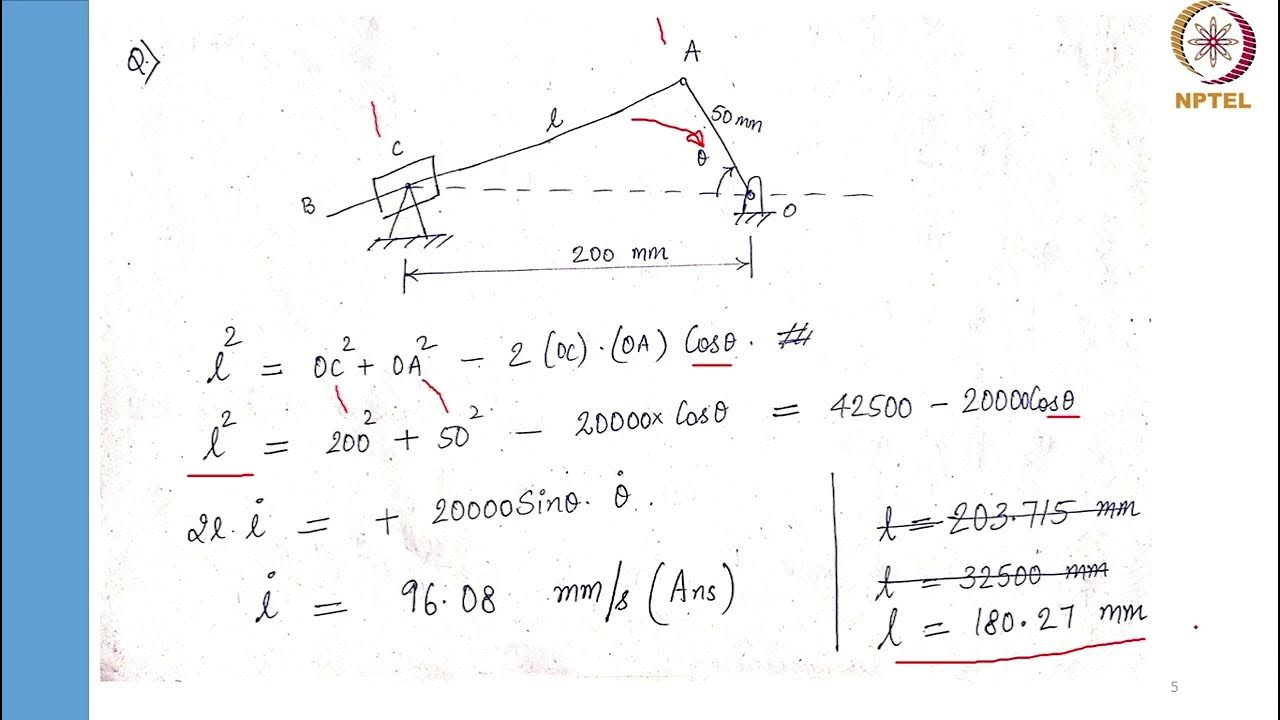 Q.)
NPTEL
A
50 mm
l
C
θ
B
O
200 mm
l² = OC² + OA² - 2 (OC) · (OA) Cosθ. #
l² = 200² + 50² - 20000× Cosθ = 42500 - 20000Cosθ
2l. l̇ = + 20000Sinθ. θ̇.
l̇ = 96.08 mm/s (Ans)
l = 203.715 mm
l = 32500 mm
l = 180.27 mm
5